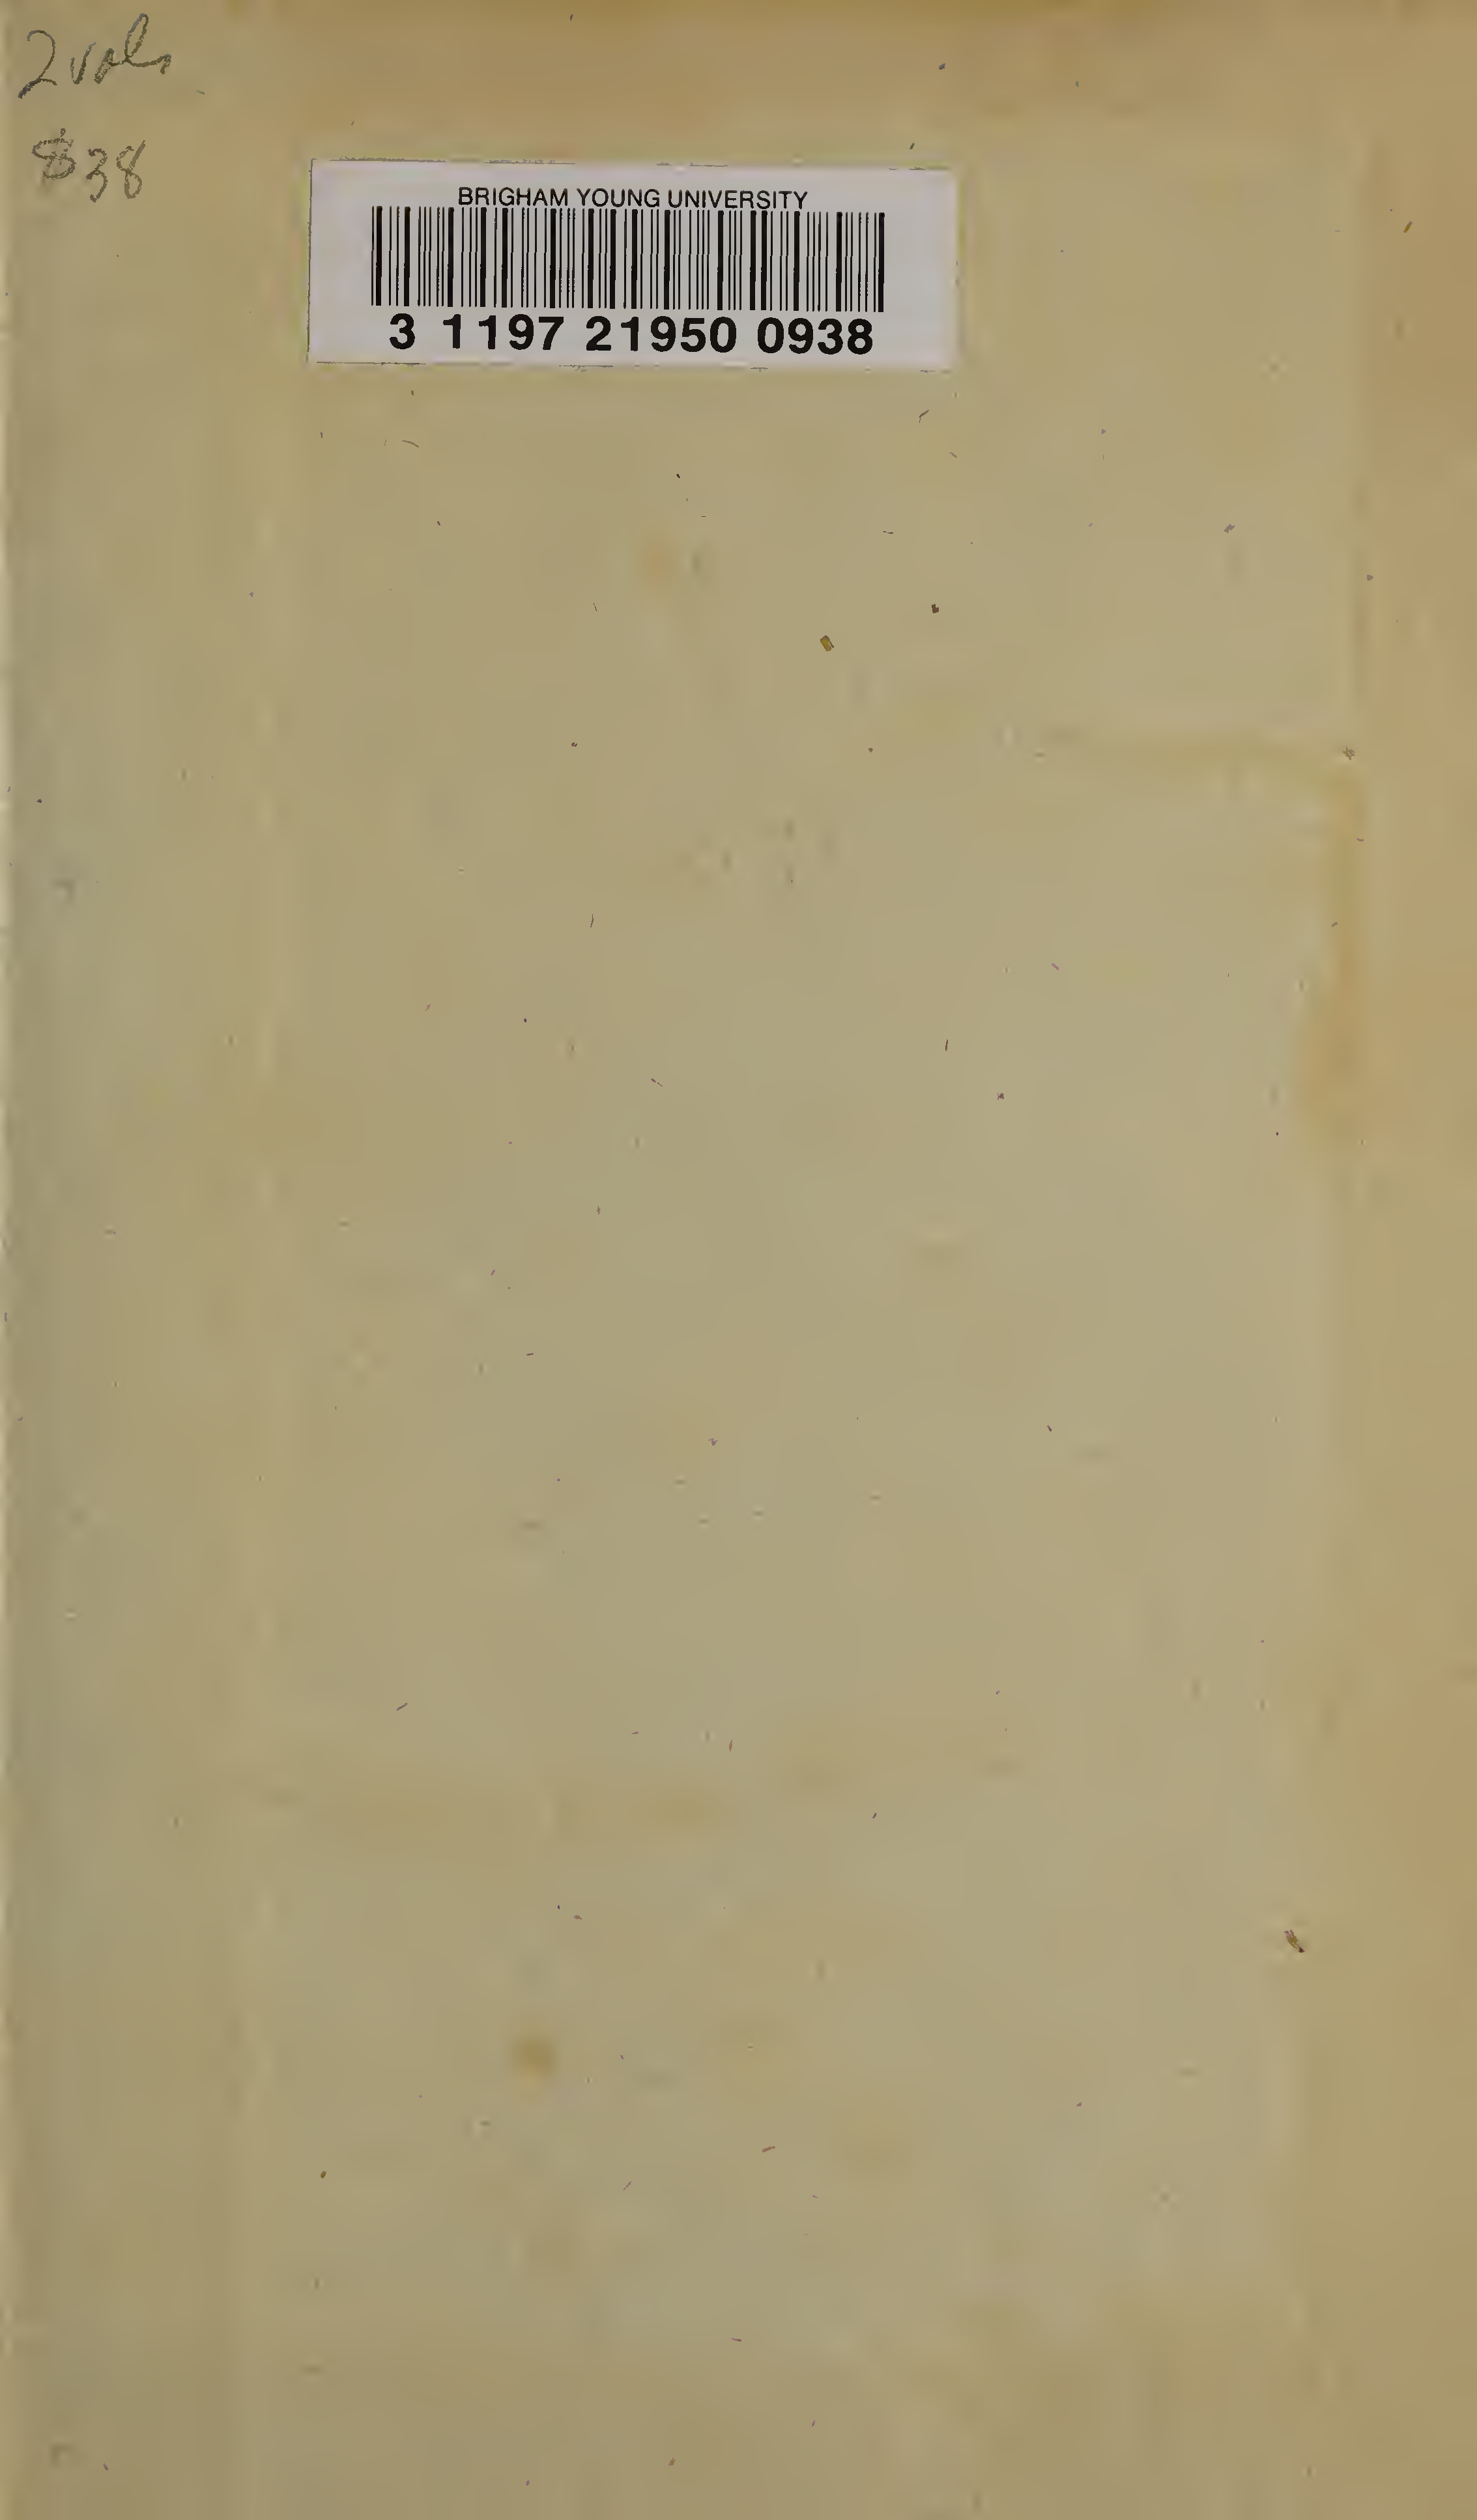 2 vols
$38
BRIGHAM YOUNG UNIVERSITY
3 1197 21950 0938